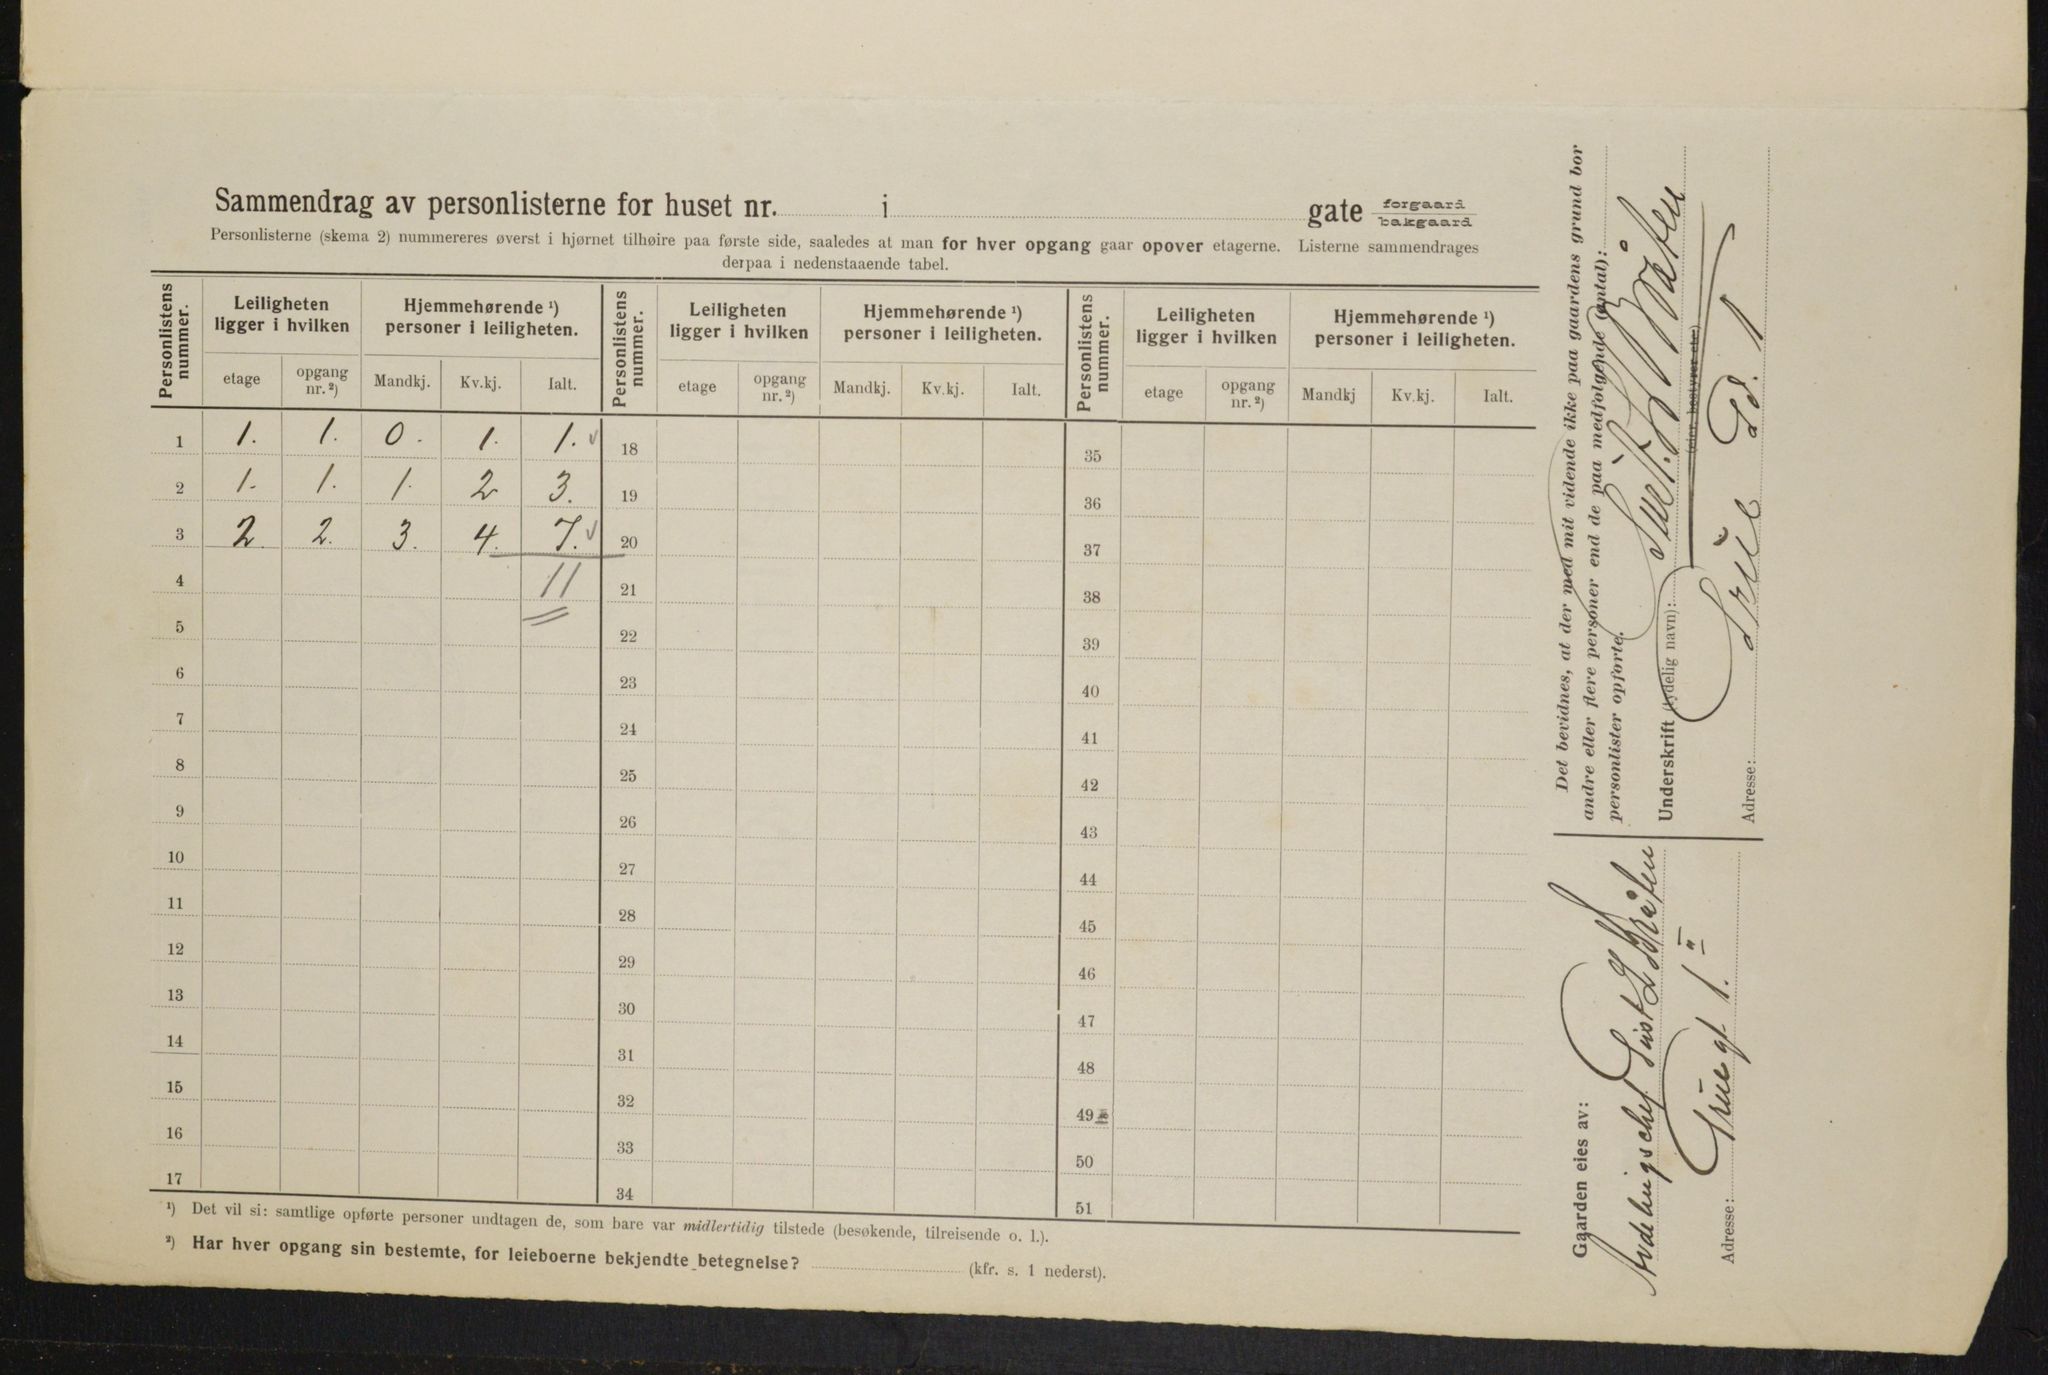 Sammendrag av personlisterne for huset nr. i gate forgaard bakgaard
Personlisterne (skema 2) nummereres øverst i hjørnet tilhøire paa første side, saaledes at man for hver opgang gaar opover etagerne. Listerne sammendrages
derpaa i nedenstaaende tabel.
Personlistens nummer. Leiligheten ligger i hvilken Hjemmehørende ¹) personer i leiligheten. Personlistens nummer. Leiligheten ligger i hvilken Hjemmehørende ¹) personer i leiligheten. Personlistens nummer. Leiligheten ligger i hvilken Hjemmehørende ¹) personer i leiligheten.
etage opgang nr. ²) Mandkj. Kv.kj. Ialt. etage opgang nr. ²) Mandkj. Kv.kj. Ialt. etage opgang nr. ²) Mandkj Kv.kj. Ialt.
1 1. 1. 0. 1. 1. 18 35
2 1. 1. 1. 2 3. 19 36
3 2. 2. 3. 4. 7. 20 37
4 11 21 38
5 22 39
6 23 40
7 24 41
8 25 42
9 26 43
10 27 44
11 28 45
12 29 46
13 30 47
14 31 48
15 32 49
16 33 50
17 34 51
¹) Det vil si: samtlige opførte personer undtagen de, som bare var midlertidig tilstede (besøkende, tilreisende o. l.).
²) Har hver opgang sin bestemte, for leieboerne bekjendte betegnelse? (kfr. s. 1 nederst).
Det bevidnes, at der med mit vidende ikke paa gaardens grund bor
andre eller flere personer end de paa medfølgende (antal):
personlister opførte.
Underskrift (tydelig navn):
(eier, bestyrer etc)
Adresse:
Gaarden eies av:
Adresse: